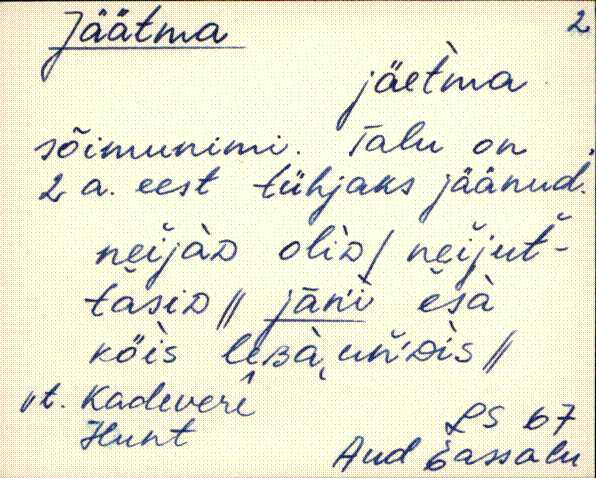 Jäätma 2
jäet̀ma
sõimunimi. Talu on
2 a. eest tühjaks jäänud.
neijàD olìD / neijut̆-
tăsiD // jăn'ì ĕsà
köìs leBà, uň'Dìs //
"t. Kadeveri
Hunt LS 67
Aud Sassalu